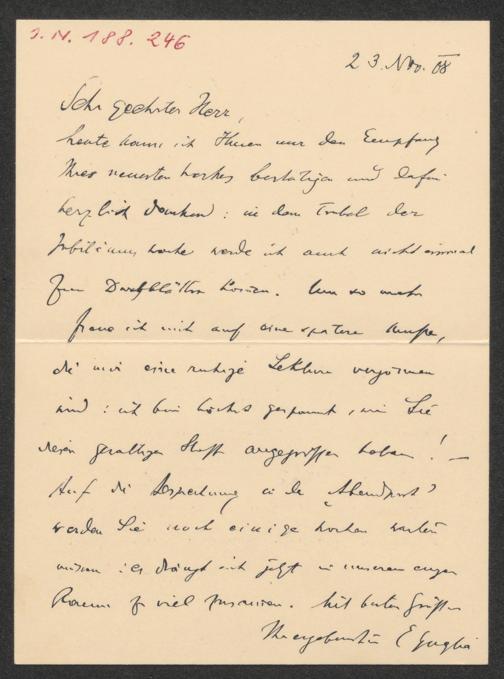 J.N. 188.246
23. Nov. 08
Sehr geehrter Herr,
heute kann ich Ihnen nur den Empfang
Ihres neuesten Werkes bestätigen und dafür
herzlich danken: in dem Trubel der
Jubiläumswoche werde ich auch nicht einmal
zum Durchblättern kommen. Um so mehr
freue ich mich auf eine spätere Musse,
die mir eine ruhige Lektüre vergönnen
wird: ich bin höchst gespannt, wie Sie
diesen gewaltigen Stoff angegriffen haben! –
Auf die Besprechung in der „Abendpost"
werden Sie noch einige Wochen warten
müssen: es drängt sich jetzt in unserem engen
Raume zu viel zusammen. Mit besten Grüssen
Ihr ergebenster E Guglia